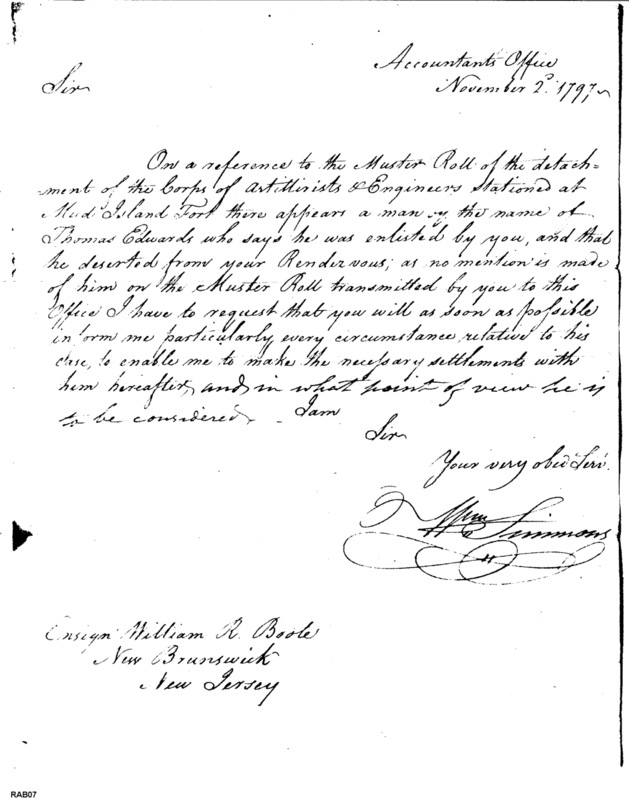 Accountants Office
November 2d. 1797
Sir
On a reference to the Muster Roll of the detach=
=ment of the Corps of Artillirists & Engineers Stationed at
Mud Island Fort there appears a man by the name of
Thomas Edwards who says he was enlisted by you, and that
he deserted from your Rendezvous; as no mention is made
of him on the Muster Roll transmitted by you to this
Office I have to request that you will as soon as possible
inform me particularly every circumstance relative to his
case, to enable me to make the necessary settlements with
him hereafter, and in what point of view he is
to be considered. I am
Sir
Your very obed Serv.
Wm Simmons
Ensign William R. Boote
New Brunswick
New Jersey
RAB07